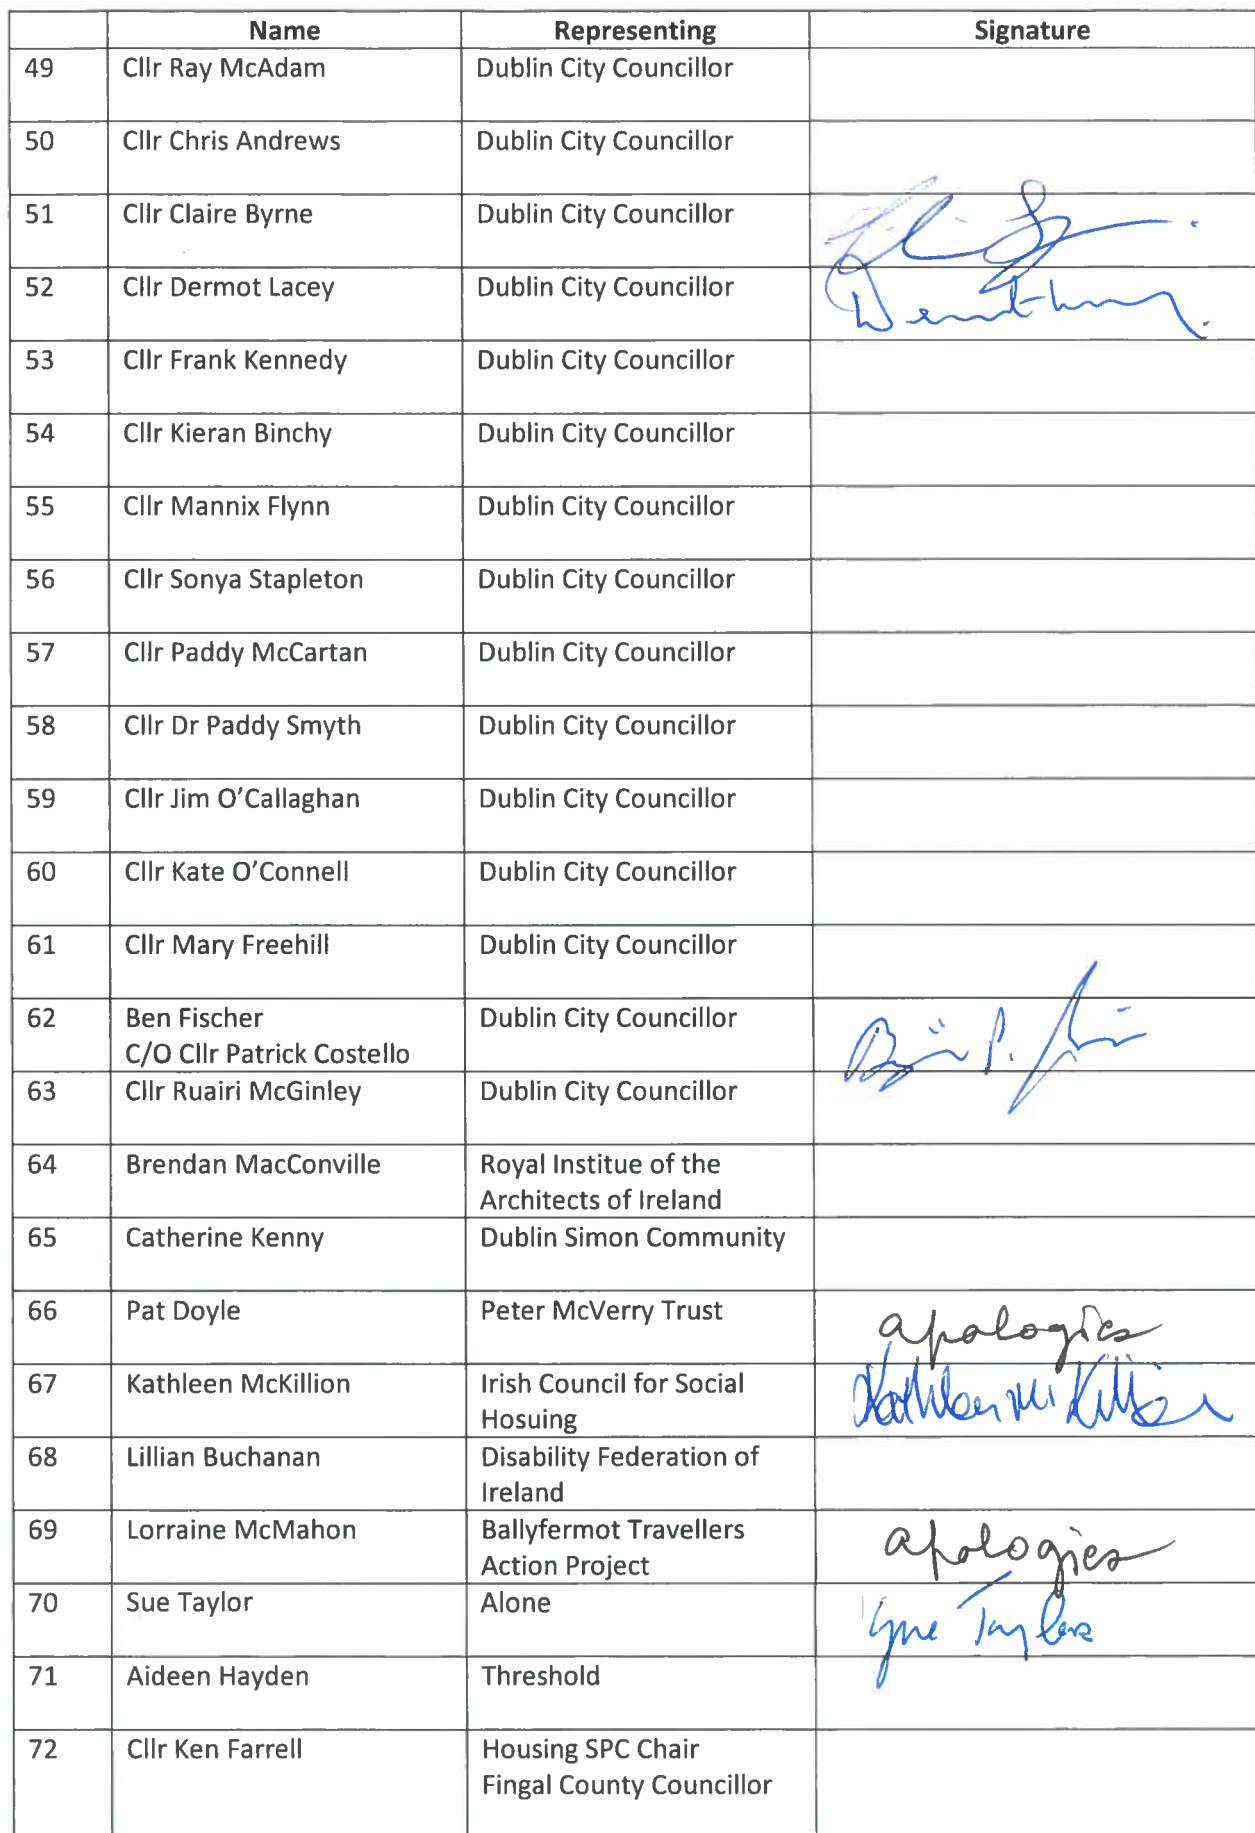 Name Representing Signature
49 Cllr Ray McAdam Dublin City Councillor
50 Cllr Chris Andrews Dublin City Councillor
51 Cllr Claire Byrne Dublin City Councillor
52 Cllr Dermot Lacey Dublin City Councillor
53 Cllr Frank Kennedy Dublin City Councillor
54 Cllr Kieran Binchy Dublin City Councillor
55 Cllr Mannix Flynn Dublin City Councillor
56 Cllr Sonya Stapleton Dublin City Councillor
57 Cllr Paddy McCartan Dublin City Councillor
58 Cllr Dr Paddy Smyth Dublin City Councillor
59 Cllr Jim O'Callaghan Dublin City Councillor
60 Cllr Kate O'Connell Dublin City Councillor
61 Cllr Mary Freehill Dublin City Councillor
62 Ben Fischer Dublin City Councillor
C/O Cllr Patrick Costello
63 Cllr Ruairi McGinley Dublin City Councillor
64 Brendan MacConville Royal Institue of the
Architects of Ireland
65 Catherine Kenny Dublin Simon Community
66 Pat Doyle Peter McVerry Trust apologies
67 Kathleen McKillion Irish Council for Social Kathleen McKillion
Hosuing
68 Lillian Buchanan Disability Federation of
Ireland
69 Lorraine McMahon Ballyfermot Travellers apologies
Action Project
70 Sue Taylor Alone Sue Taylor
71 Aideen Hayden Threshold
72 Cllr Ken Farrell Housing SPC Chair
Fingal County Councillor